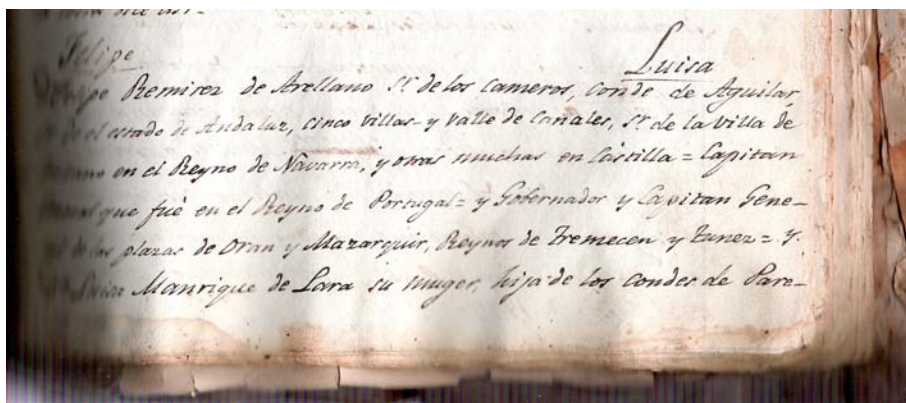 Felipe Luisa
Felipe Remirez de Arellano Sr. de los Cameros, Conde de Aguilar,
el estado de Andaluz, cinco villas y valle de Canales, Sr. de la villa de
en el Reyno de Navarra, y otras muchas en Castilla = Capitan
que fué en el Reyno de Portugal = y Gobernador y Capitan Gene-
de las plazas de Oran y Mazarquir, Reynos de Tremecen y Tunez = y
Luisa Manrique de Lara su muger, hija de los Condes de Pare-